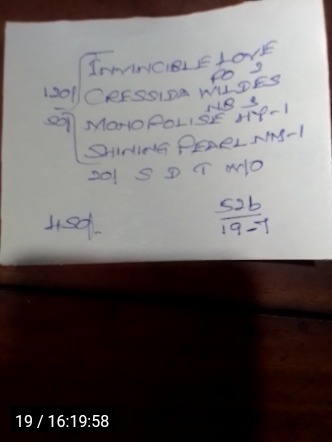 INVINCIBLE LOVE
PO 2
120/ CRESSIDA WILDES
NB 3
50/ MONOPOLISE HY-1
SHINING PEARL NM-1
20/ S D T W/O
450/-
526
19-7
19 / 16:19:58